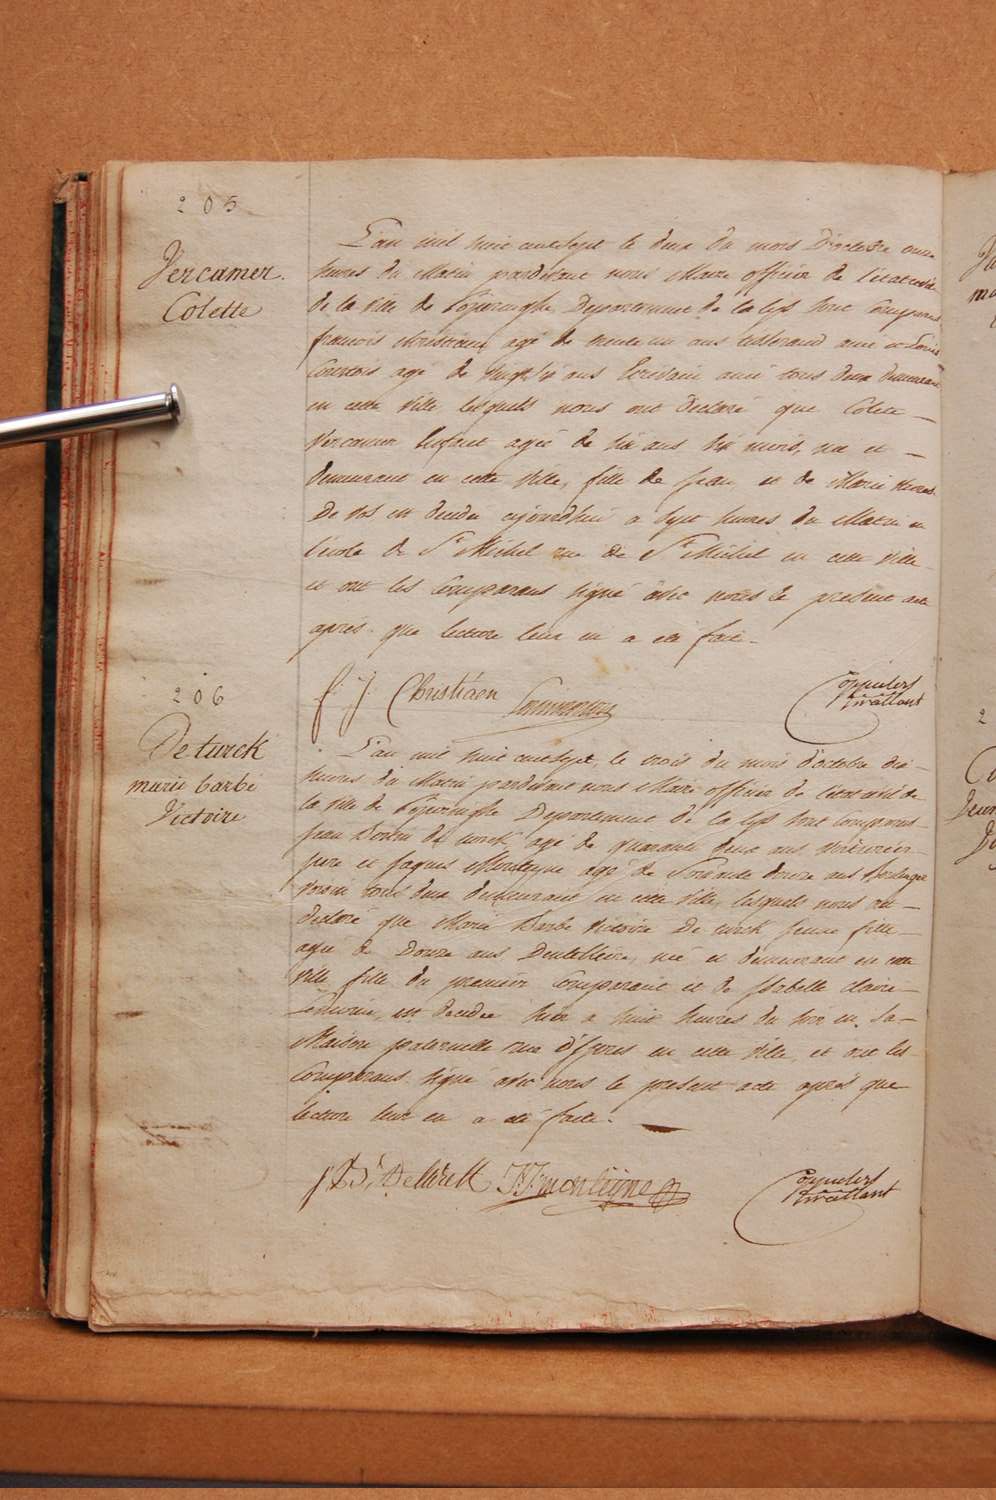 205
Vercamer
Colette
L'an mil huit cent sept le deux du mois D'octobre onze
heures du Matin pardevant nous Maire officier de l'état civil
de la ville de Poperinghe Departement de la Lys sont Comparus
françois Christiaen agé de trente un ans tisserand ami et Louis
agé de ans Ecrivain ami tous deux demeurant
en cette ville, lesquels nous ont declaré que Colette
Vercamer Enfant agée de six ans six mois, née et
demeurant en cette ville, fille de Jean et de Marie therese
De Vos est decedée aujourd'hui a sept heures du Matin en
l'école de St Michel rue de St Michel en cette ville
et ont les Comparans signé avec nous le present acte
après que lecture leur en a été fait.
f: J: Christiaen
206
De turck
marie barbe
Victoire
L'an mil huit cent sept, le trois du mois d'octobre dix
heures du Matin pardevant nous Maire officier de l'état civil de
la ville de Poperinghe Departement de la Lys sont Comparus
Jean De turck, agé de quarante deux ans
pere et Jaques Monteyne agé de Soixante douze ans Boulanger
voisin tous deux demeurant en cette ville, lesquels nous ont
declaré que Marie Barbe Victoire De turck Jeune fille
agée de Douze ans Dentelliere, née et demeurant en cette
ville fille du premier Comparant et de Isabelle claire
est decedée hier a huit heures du soir en sa
Maison paternelle rue d'Ypres en cette ville, et ont les
Comparans signé avec nous le present acte après que
lecture leur en a été faite.
De turck J: J: monteyne